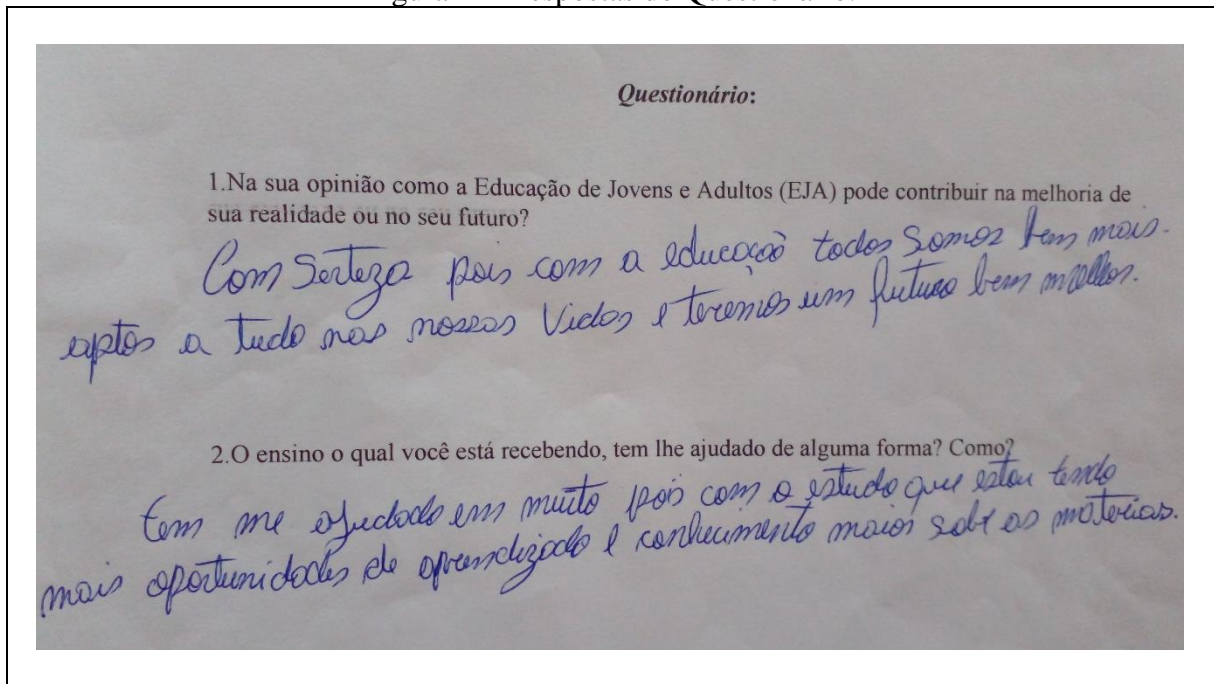 Questionário:
1.Na sua opinião como a Educação de Jovens e Adultos (EJA) pode contribuir na melhoria de
sua realidade ou no seu futuro?
Com Serteza pois com a educação todos Somos bem mais.
aptos a tudo nas nossas Vidas e teremos um futuro bem melhor.
2.O ensino o qual você está recebendo, tem lhe ajudado de alguma forma? Como?
tem me ajudado em muito pois com o estudo que estou tendo
mais oportunidades de aprendizado e conhecimento maior sobre as materias.